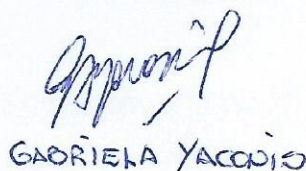 GABRIELA YACONIS